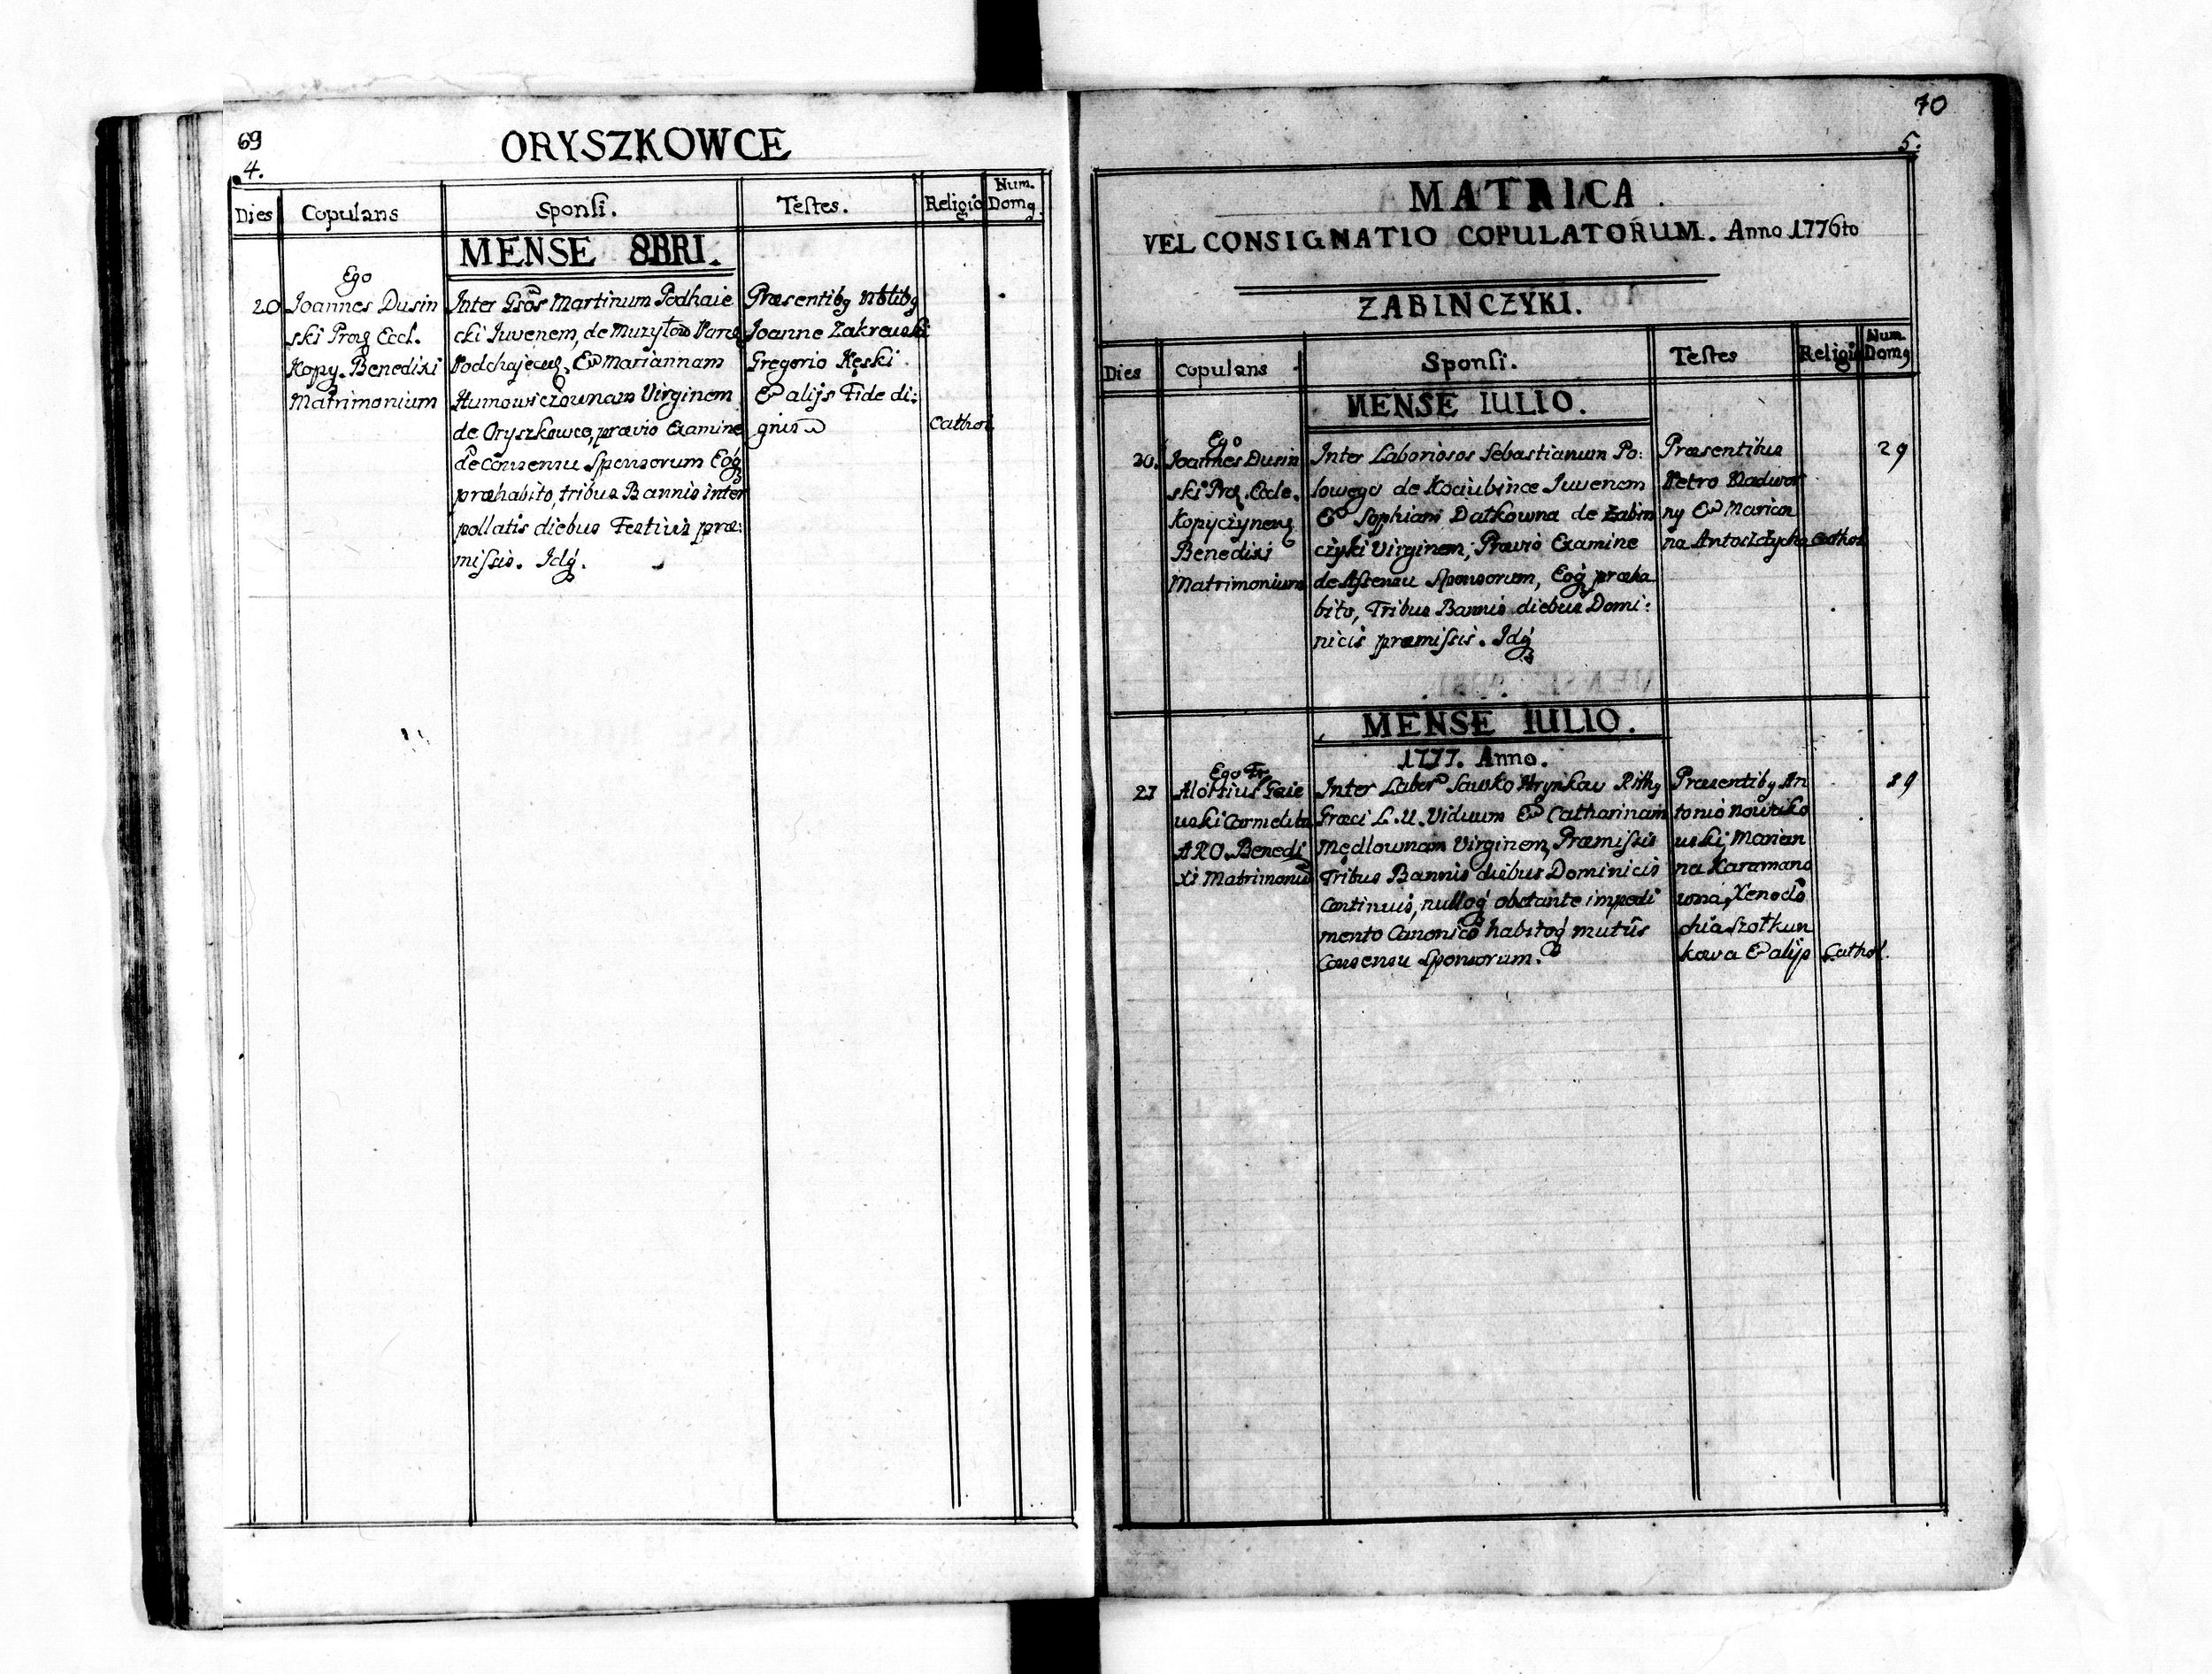 69
4.
ORYSZKOWCE
Dies
Copulans
Sponsi.
Testes.
Religio
Num. Domq
MENSE 8BRI.
20
Ego
Joannes Dusin
ski Proq Eccl.
Kopy. Benedixi
Matrimonium
Inter Gsōs Martinum Podhaie
cki Iuvenem, de Muzyłow Paroq
Podchajeceq, & Mariannam
Humowiczownam Virginem
de Oryszkowce, prævio Examine
de consensu Sponsorum Eoq
præhabito, tribus Bannis inter
pollatis diebus Festivis præ:
missis. Idq.
Præsentibq Nblibq
Joanne Zakrewski
Gregorio Kęski
& alijs Fide di:
gnis
Cathol.
70
5.
MATRICA
VEL CONSIGNATIO COPULATORUM. Anno 1776to
ZABINCZYKI.
Dies
Copulans
Sponsi.
Testes
Religio
Num. Domq
MENSE IULIO.
20.
Ego
Joannes Dusin
ski Proq. Eccle.
Kopyczynenq
Benedixi
Matrimonium
Inter Laboriosos Sebastianum Po:
lowego de Kociubince Iuvenem
& Sophiam Datkowna de Zabin
czyki Virginem, Prævio Examine
de Assensu Sponsorum, Eoq præha
bito, Tribus Bannis diebus Domi:
nicis præmissis. Idq
Præsentibus
Petro Nadwor
ny & Marian
na Antoszczycha
Cathol
29
MENSE IULIO.
1777. Anno.
27
Ego Fr.
Aloÿsius Gaie
wski Carmelita
ARO. Benedi
xi Matrimoniū
Inter Labor Sawko Hrynkow Rithq
Græci L. U. Viduum & Catharinam
Mędlownam Virginem, Præmissis
Tribus Bannis diebus Dominicis
Continuis, nulloq obstante impedi
mento Canonico habitoq mutūs
Consensu Sponsorum.
Præsentibq An
tonio Nowako
wski, Marian
na Karamano
wna, Xenodo
chia Szołkun
kowa & alijs
Cathol.
29